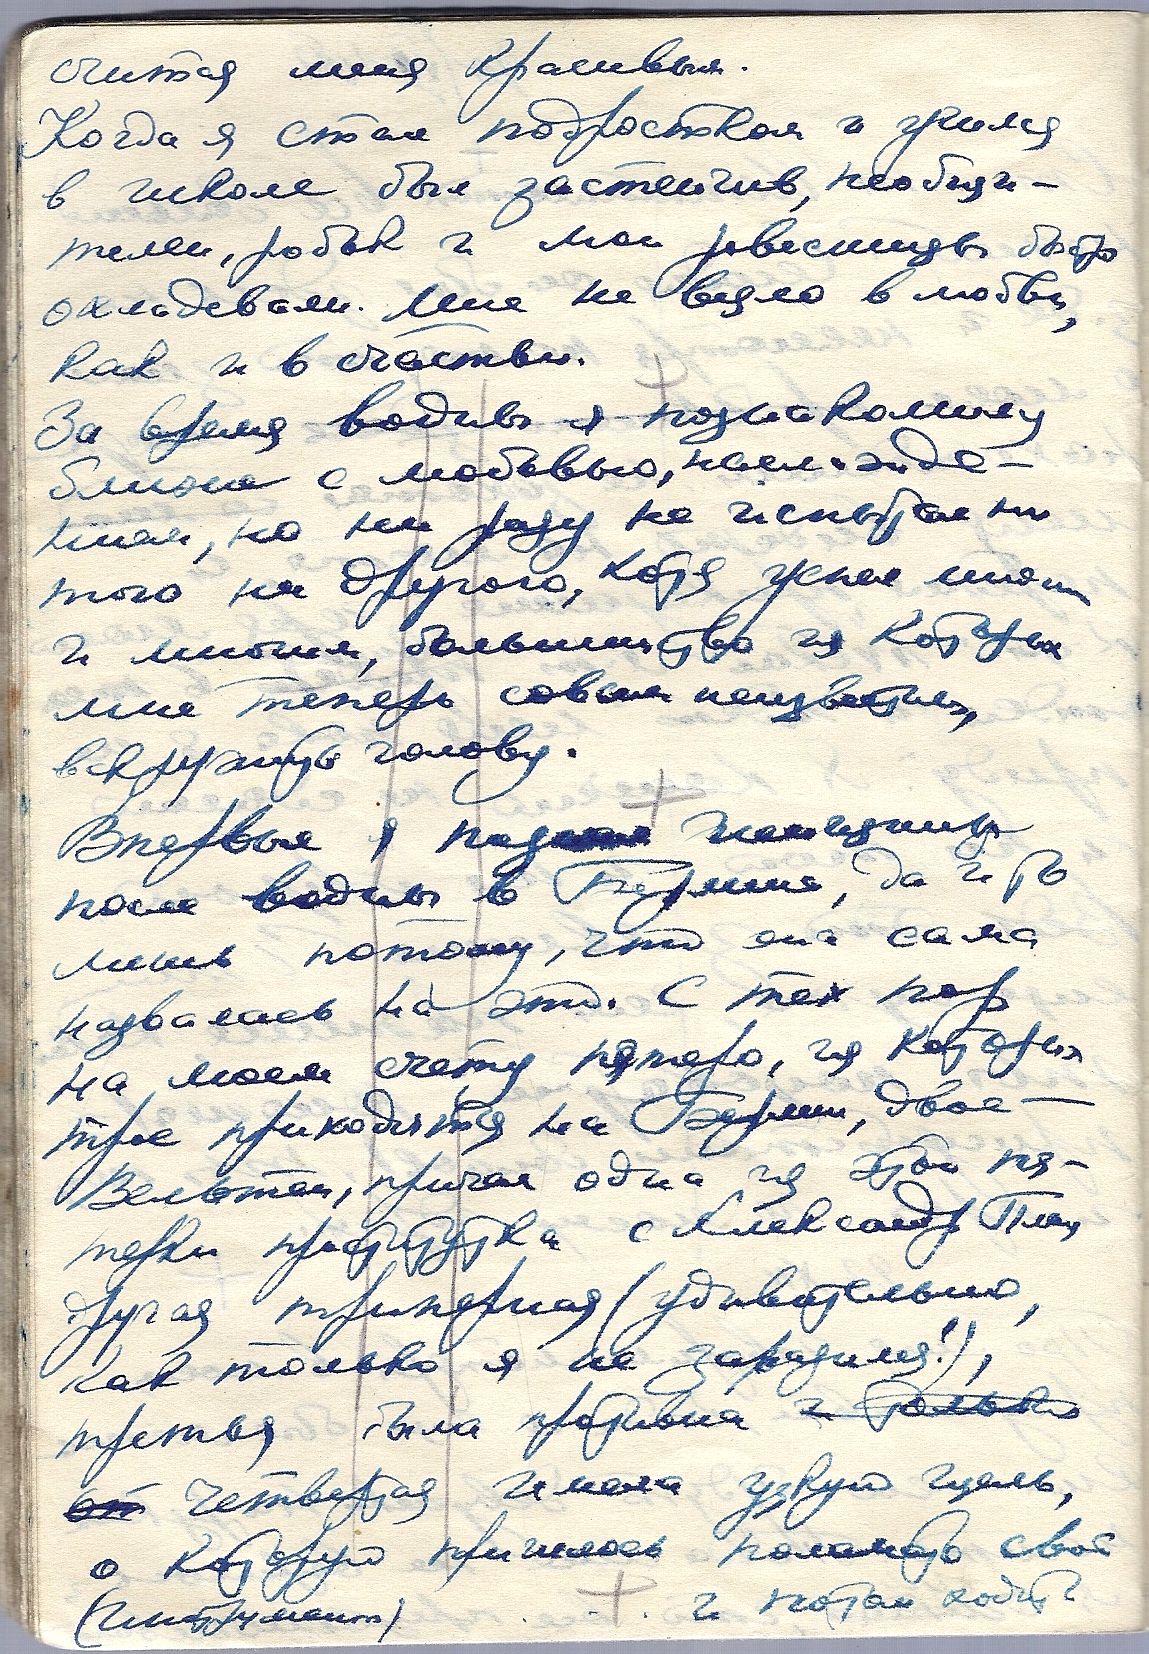 считая меня красивым.
Когда я стал подростком и учился
в школе был застенчив, необщи-
телен, робок и мои ровесницы быстро
охладевали. Мне не везло в любви,
как и в счастьи.
За время войны я познакомился
ближе с любовью, наслажде-
ниям, но ни разу не испытал ни
того ни другого, хотя успел многим
и многим, большинство из которых
мне теперь совсем неизвестны,
вскружить голову.
Впервые я познал женщину
после войны в Берлине, да и то
лишь потому, что она сама
назвалась на это. С тех пор
на моем счету пятеро, из которых
трое приходятся на Берлин, двое –
Вельтен, причем одна из этой пя-
терки проститутка с Александр Плац
другая триперная (удивительно,
как только я не заразился!),
третья была противна и только
от четвертая имела узкую щель,
о которую пришлось поломать свой
(инструмент) и потом ходить